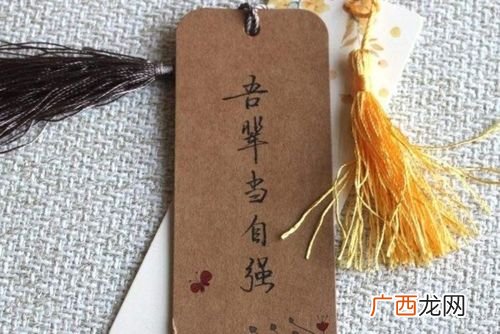 吾辈当自强
广西龙网